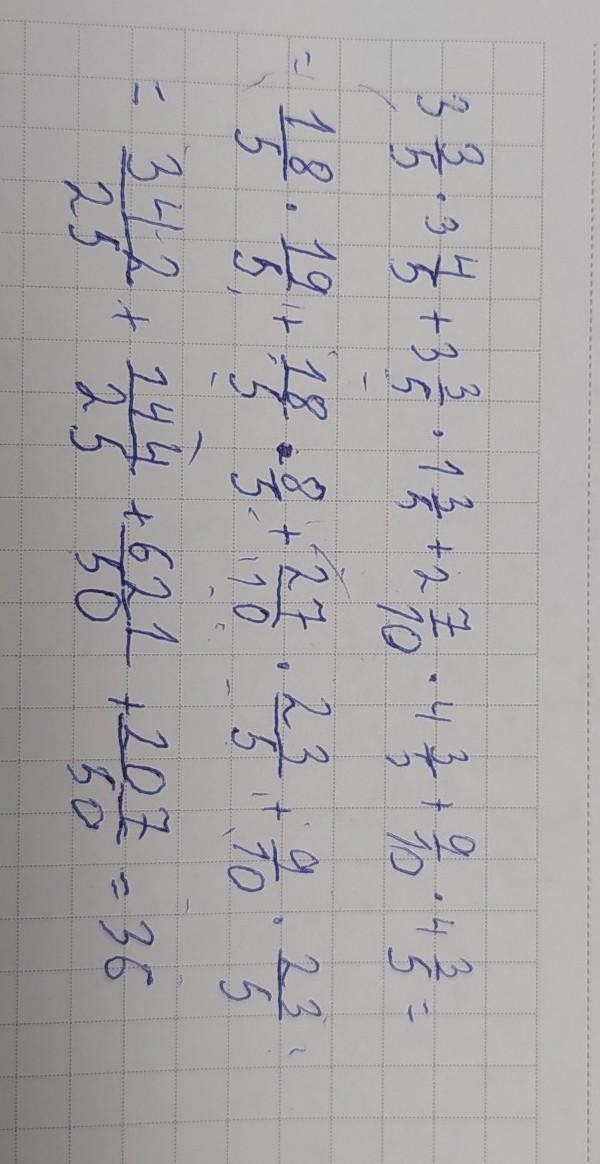 3 3/5 · 3 4/5 + 3 3/5 · 1 3/5 + 2 7/10 · 4 3/5 + 9/10 · 4 3/5 =
= 18/5 · 19/5 + 18/5 · 8/5 + 27/10 · 23/5 + 9/10 · 23/5
= 342/25 + 144/25 + 621/50 + 207/50 = 36